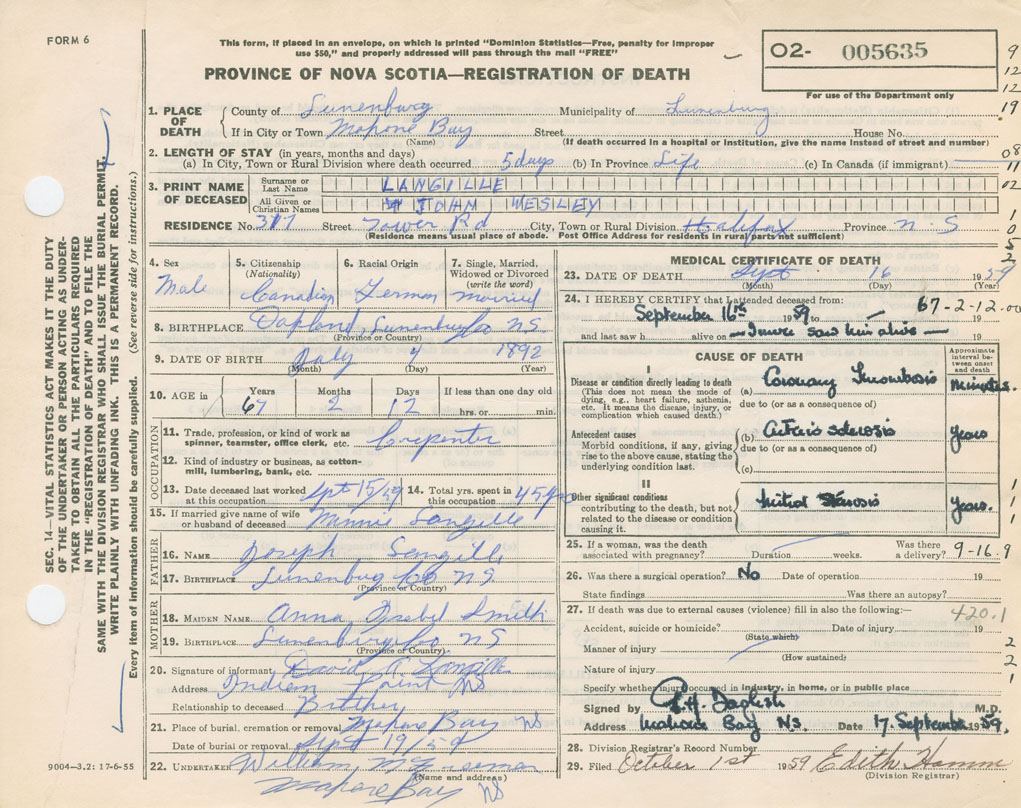 FORM 6
This form, if placed in an envelope, on which is printed "Dominion Statistics—Free, penalty for improper
use $50," and properly addressed will pass through the mail "FREE"
PROVINCE OF NOVA SCOTIA—REGISTRATION OF DEATH
O2- 005635
For use of the Department only
9
12
12
19
08
11
02
1
0
5
2
SEC. 14—VITAL STATISTICS ACT MAKES IT THE DUTY
OF THE UNDERTAKER OR PERSON ACTING AS UNDER-
TAKER TO OBTAIN ALL THE PARTICULARS REQUIRED
IN THE "REGISTRATION OF DEATH" AND TO FILE THE
SAME WITH THE DIVISION REGISTRAR WHO SHALL ISSUE THE BURIAL PERMIT.
WRITE PLAINLY WITH UNFADING INK. THIS IS A PERMANENT RECORD.
Every item of information should be carefully supplied. (See reverse side for instructions.)
1. PLACE OF DEATH County of Lunenburg Municipality of Lunenburg
If in City or Town Mahone Bay Street House No.
(Name) (If death occurred in a hospital or institution, give the name instead of street and number)
2. LENGTH OF STAY (in years, months and days)
(a) In City, Town or Rural Division where death occurred 5 days (b) In Province Life (c) In Canada (if immigrant)
3. PRINT NAME OF DECEASED Surname or Last Name LANGILLE
All Given or Christian Names JOHN WESLEY
RESIDENCE No. 317 Street Tower Rd City, Town or Rural Division Halifax Province N.S
(Residence means usual place of abode. Post Office Address for residents in rural parts not sufficient)
4. Sex 5. Citizenship (Nationality) 6. Racial Origin 7. Single, Married, Widowed or Divorced (write the word)
Male Canadian German married
8. BIRTHPLACE Oakland, Lunenburg Co NS
(Province or Country)
9. DATE OF BIRTH July 4 1892
(Month) (Day) (Year)
10. AGE in Years Months Days If less than one day old
67 2 12 hrs. or min.
OCCUPATION
11. Trade, profession, or kind of work as spinner, teamster, office clerk, etc. Carpenter
12. Kind of industry or business, as cotton-mill, lumbering, bank, etc.
13. Date deceased last worked at this occupation Sept 15/59 14. Total yrs. spent in this occupation 45 yrs
15. If married give name of wife or husband of deceased Minnie Langille
FATHER
16. NAME Joseph Langille
17. BIRTHPLACE Lunenburg Co NS
(Province or Country)
MOTHER
18. MAIDEN NAME Anna Isabel Smith
19. BIRTHPLACE Lunenburg Co NS
(Province or Country)
20. Signature of informant David A. Langille
Address Indian Point NS
Relationship to deceased Brother
21. Place of burial, cremation or removal Mahone Bay NS
Date of burial or removal Sept 19/59
22. UNDERTAKER William
(Name and address)
Mahone Bay NS
9004—3.2: 17-6-55
MEDICAL CERTIFICATE OF DEATH
23. DATE OF DEATH Sept 16 1959
(Month) (Day) (Year)
24. I HEREBY CERTIFY that I attended deceased from: 67-2-12.00
September 16th 1959 to 19
and last saw h alive on — I never saw him alive —
CAUSE OF DEATH
Approximate interval between onset and death
I
Disease or condition directly leading to death (a) Coronary Thrombosis minutes.
(This does not mean the mode of dying, e.g., heart failure, asthenia, etc. It means the disease, injury, or complication which caused death.)
due to (or as a consequence of)
Antecedent causes (b) Arterio sclerosis years
Morbid conditions, if any, giving rise to the above cause, stating the underlying condition last.
due to (or as a consequence of)
(c)
II
Other significant conditions Mitral Stenosis Years.
contributing to the death, but not related to the disease or condition causing it.
1
1
25. If a woman, was the death associated with pregnancy? Duration weeks. Was there a delivery? 9-16.9
26. Was there a surgical operation? No Date of operation 19
State findings Was there an autopsy?
27. If death was due to external causes (violence) fill in also the following:— 420.1
Accident, suicide or homicide? Date of injury 19
(State which)
Manner of injury 2
(How sustained)
2
Nature of injury 1
Specify whether injury occurred in industry, in home, or in public place
Signed by Daglish M.D.
Address Mahone Bay NS. Date 17. September 1959.
28. Division Registrar's Record Number
29. Filed October 1st 1959 Edith Hamm
(Division Registrar)